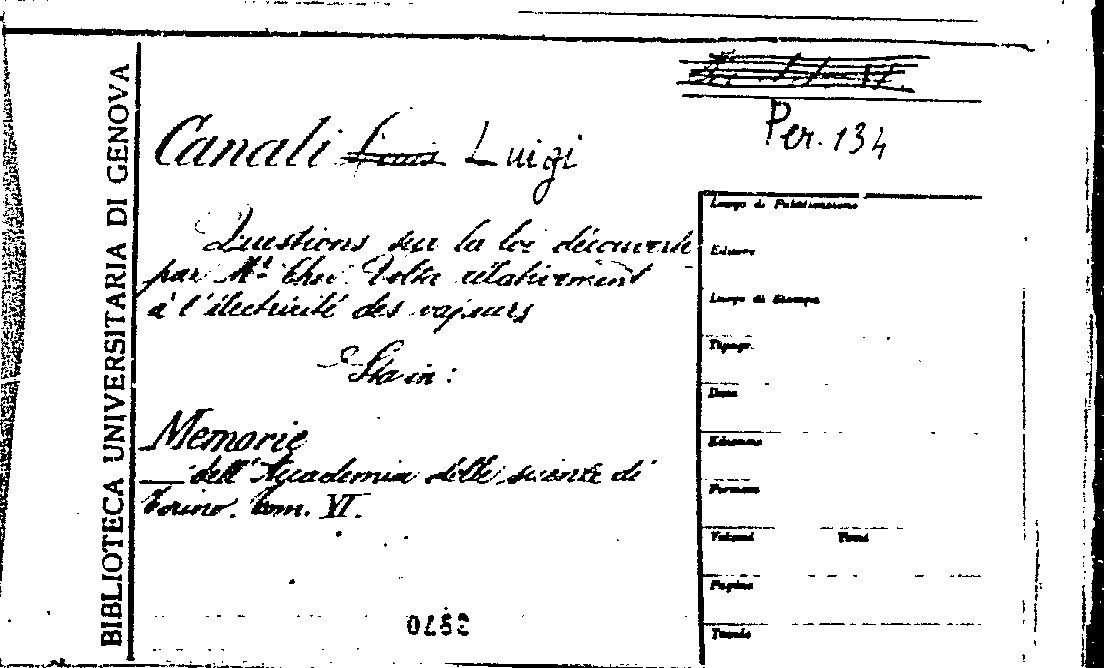 BIBLIOTECA UNIVERSITARIA DI GENOVA
Per. 134
Canali Louis Luigi
Questions sur la loi découverte
par Mr. Chev. Volta relativement
à l'électricité des vapeurs
Sta in:
Memorie
dell'Accademia delle scienze di
Torino. Tom. VI.
Luogo di Pubblicazione
Editore
Luogo di Stampa
Tipogr.
Data
Edizione
Formato
Volumi Tomi
Pagine
Tavole